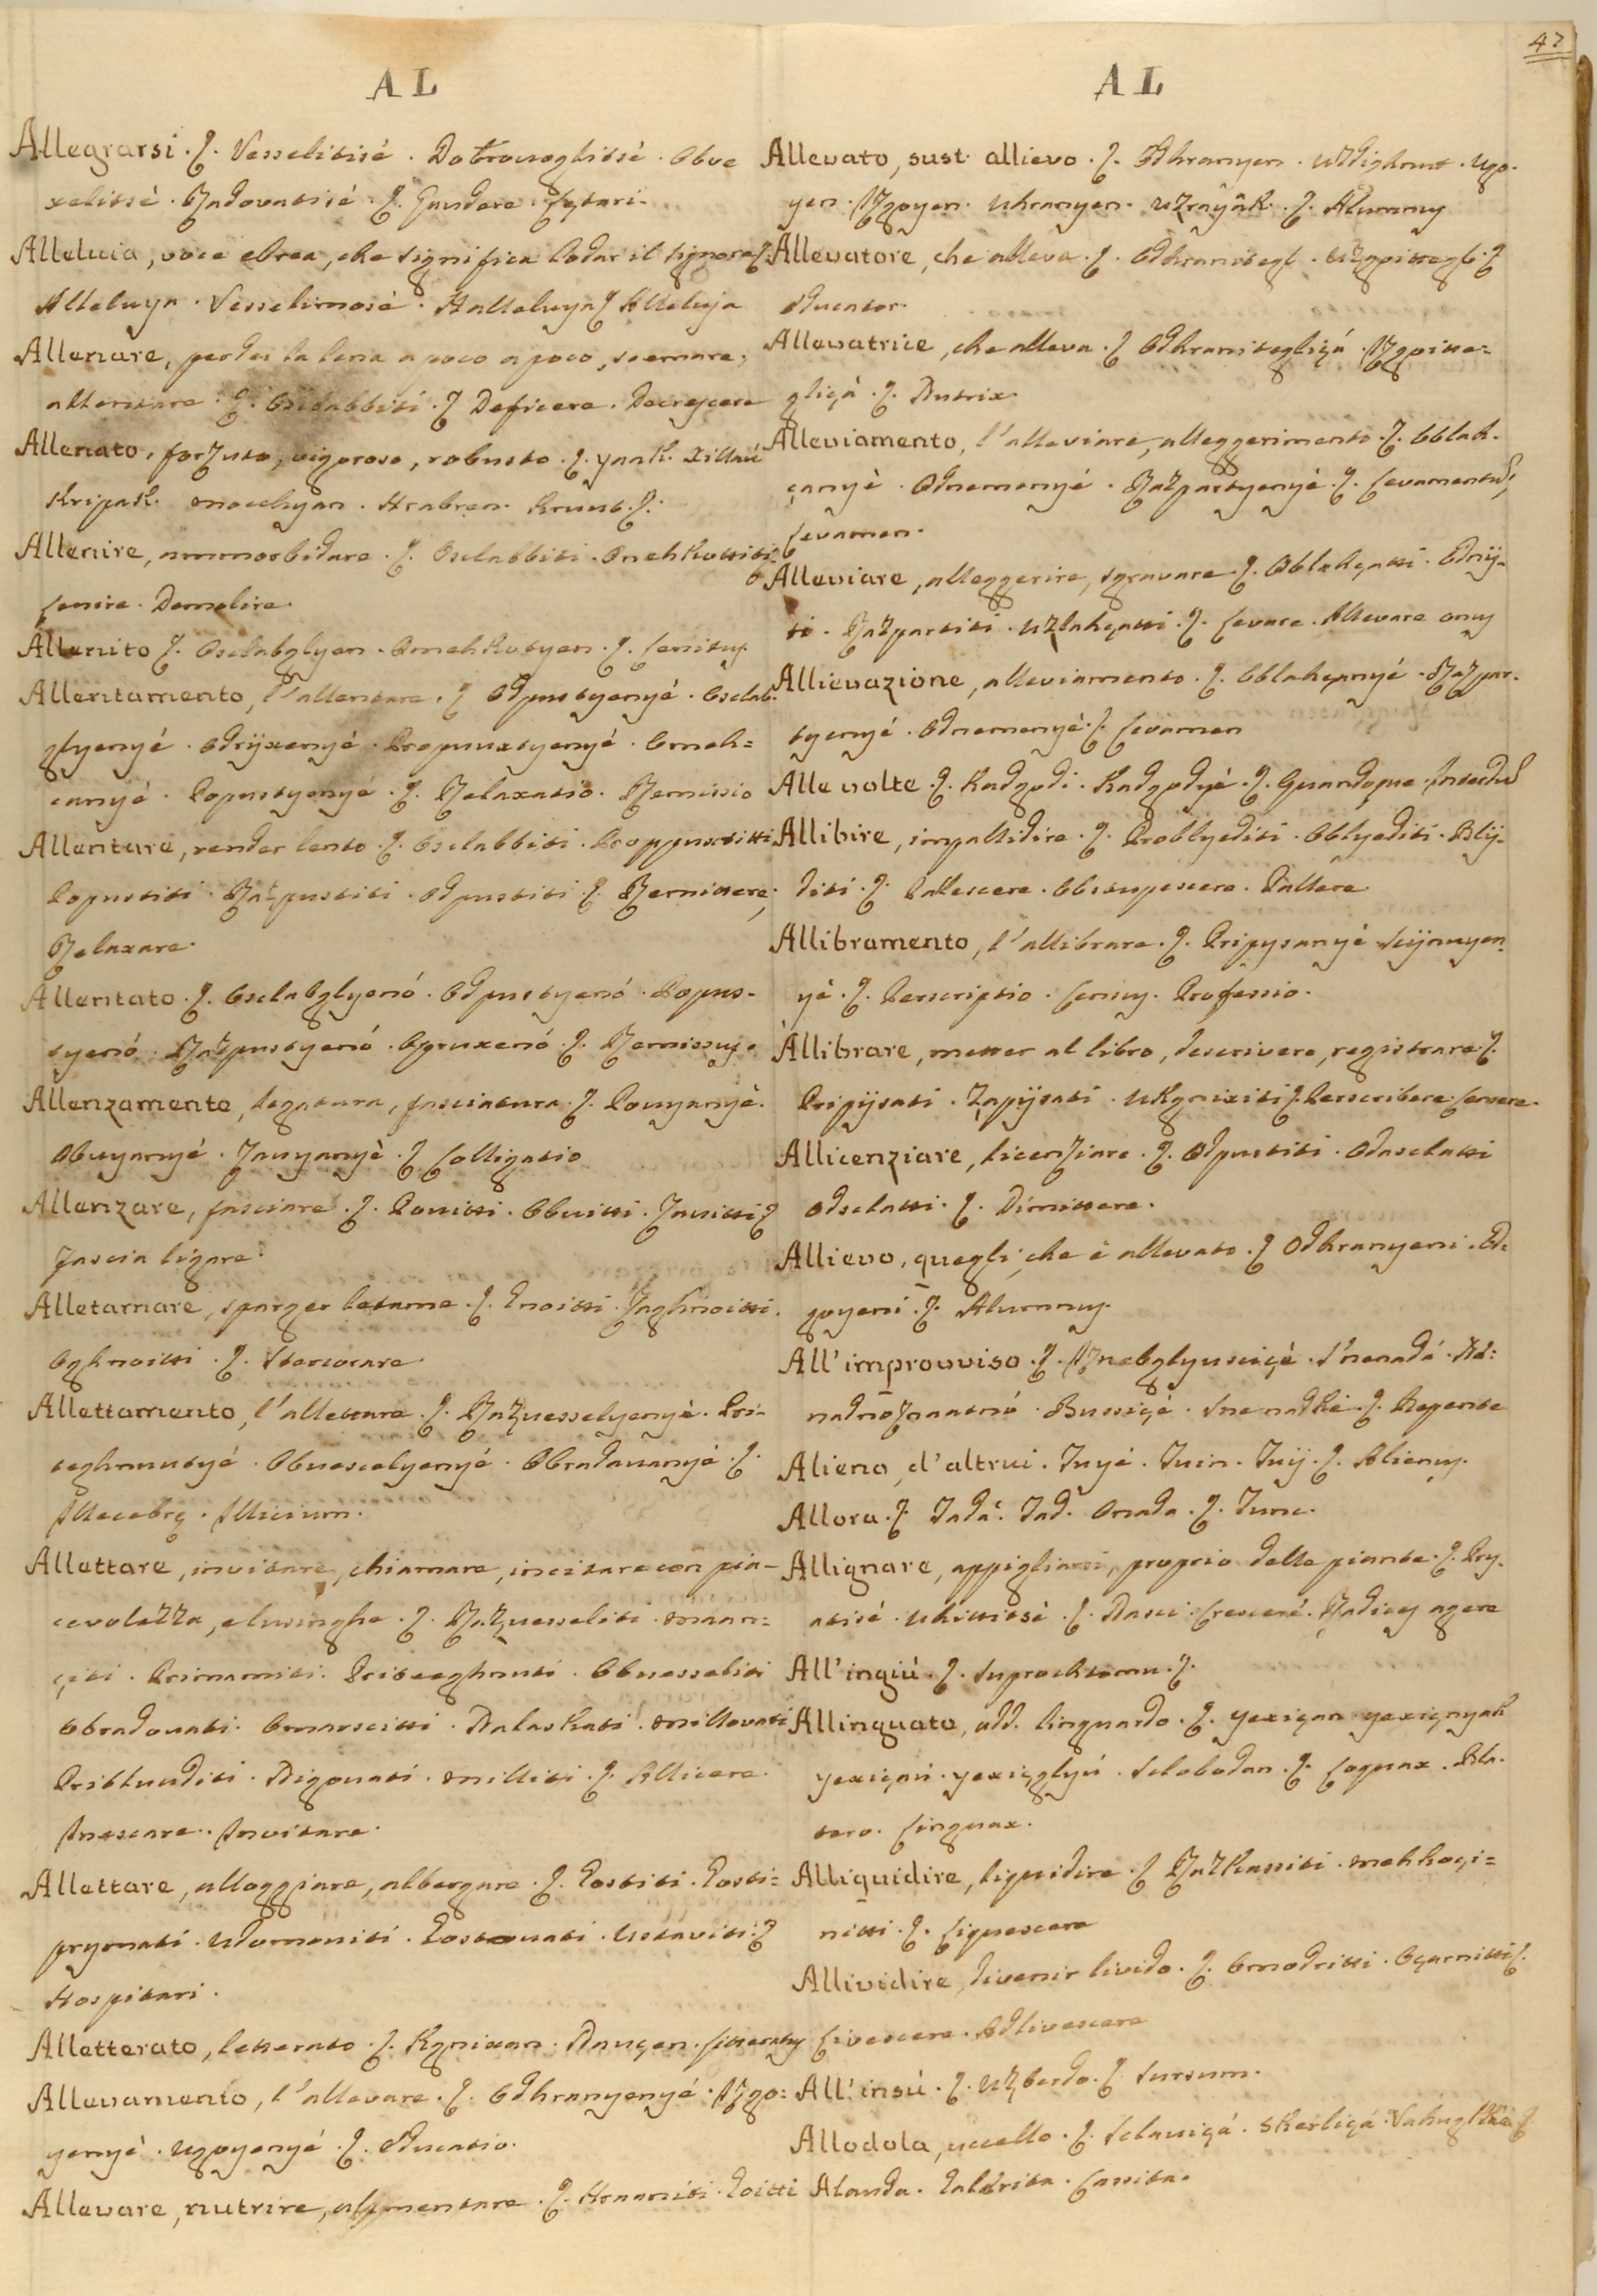 47
AL
Allegrarsi . ζ. Vesselitisè . Dobrovoglitsè . Obve
xelitsè . Radovatisè . ζ. Gaudere . Lętari.
Alleluia, voce ebrea, che significa lodar il signore ζ.
Alleluya . Vesselimosè . Halleluya ζ Alleluja
Allenare, perder la lena a poco a poco, scemare,
allentare . ζ. Osclabbiti . ζ Deficere . Decrescere
Allenato, forzuto, vigoroso, robusto . ζ. yaak. xillav
Kripak. moochyan . Hrabren . Kruut . ζ.
Allenire, ammorbidare . ζ. Osclabbiti . Omehkottiti ζ
Lenire . Demolire.
Allenito ζ. Osclabglyen . Omehkotyen . ζ. Lenitus.
Allentamento, l'allentare . ζ Odpustyenyé . Osclab-
glyenyé . Odrijxenyé . Propuuxtyenyé . Omeh=
canyé . Popustyenyé . ζ. Relaxatio . Remissio
Allentare, render lento . ζ. Osclabbiti . Proppuxtitti
Popustiti . Razpustiti . Odpustiti ζ. Remittere,
Relaxare.
Allentato . ζ. Osclabglyenó . Odpustyenó . Popus-
tyenó . Razpustyenó . Opruxenó . ζ. Remissus.
Allenzamento, legatura, fasciatura . ζ. Povyanyè.
Obvyanyé . Zavyanyè . ζ Colligatio
Allenzare, fasciare . ζ. Povitti . Obvitti . Zavitti ζ
Fascia ligare.
Alletamare, sparger letame . ζ. Gnoitti . Zaghnoitti.
Oghnoitti . ζ. Stercorare.
Allettamento, l'allettare . ζ. Razvesselyenyè . Pri-
teghnutyé . Obvescelyenyé . Obradovanyé . ζ.
Illecebrę . Illicium.
Allettare, invitare, chiamare, incitare con pia-
cevolezza, e lusinghe . ζ. Razvesseliti . maam=
çiti . Primamiti . Priteeghnuti . Obvesseliti
Obradovati . Omarscitti . Nalaskati . millovati
Priblunditi . Nigovati . milliti . ζ. Allicere.
Inescare . Invitare.
Allettare, alloggiare, albergare . ζ. Gostiti . Gosti=
prymati . Udomoviti . Gostovati . Ustaviti ζ
Hospitari.
Alletterato, letterato . ζ. Kgnixan . Nauçen . Litteratus
Allevamento, l'allevare . ζ. Odhranyenyé . Izgo=
yenyé . Ugoyenyé . ζ. Educatio.
Allevare, nutrire, alimentare . ζ. Hraaniti . Goitti
AL
Allevato, sust. allievo . ζ. Odhranyen . Uzdighnut . Ugo-
yen . Izgoyen . Uhranyen . Uzrayâk . ζ. Alumnus
Allevatore, che alleva . ζ. Odhranitegl . Uzgoittegl . ζ
Educator.
Allevatrice, che alleva . ζ Odhraniteglicá . Izgoitte=
gliçà . ζ. Nutrix.
Alleviamento, l'alleviare, alleggerimento . ζ. Oblah-
çanyè . Odnemenyé . Razpartyenyè . ζ. Levamentum,
Levamen.
Alleviare, alleggerire, sgravare . ζ. Oblahçatti . Odnij-
ti . Razpartiti . Uzlahçatti . ζ. Levare . Allevare onus
Allievazione, alleviamento . ζ. Oblahçanyé . Razpar-
tyenyé . Odnemenyè . ζ. Levamen
Alle volte . ζ. Kadgodi . Kadgodyè . ζ. Quandoque . Interdum
Allibire, impallidire . ζ. Problyediti . Oblyediti . Blij-
diti . ζ. Pallescere . Obstupescere . Pallere
Allibramento, l'allibrare . ζ. Pripysanyé Scijnuyen-
yè . ζ. Perscriptio . Census . Professio.
Allibrare, metter al libro, descrivere, registrare ζ.
Pripijsati . Zapijsati . Ukgnixiti ζ. Perscribere . Censere.
Allicenziare, licenziare . ζ. Odpustiti . Odasclatti
Odsclatti . ζ. Dimittere.
Allievo, quegli, che è allevato . ζ Odhranyeni . Od-
goyeni . ζ. Alumnus.
All'improvviso . ζ. Iznebglyusciçè . S'nenadá . Ne=
nadno Znaatnó . Bussiçé . Snenadkè . ζ. Repente
Alieno, d'altrui . Tuyé . Tuin . Tuij . ζ. Alienus.
Allora . ζ. Tadá . Tad . Onada . ζ. Tunc.
Allignare, appigliarsi, proprio delle piante . ζ. Pry-
atisé . Uhititsè . ζ. Nasci . Crescere . Radices agere
All'ingiù . ζ. Suprochtomu . ζ.
Allinguato, add. linguardo . ζ. yexiçan yexiçnyak
yexiçav . yexiçglyv . Sclobodan . ζ. Loquax . Bla-
tero . Linguax.
Alliquidire, liquidire . ζ Razkassiti . mehkoçi=
nitti . ζ. Liquescere
Allividire, divenir livido . ζ. Omodritti . Oçarnitti ζ.
Livescere . Adlivescere
All'insú . ζ. Uzbardo . ζ. Sursum.
Allodola, uccello . ζ. Sclaviçá . Skerliçá .
Alauda . Galerita . Cassita.